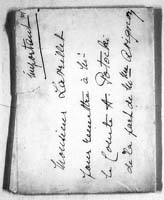 important
Monsieur Lavillet
pour remettre à
le Comte A Potocki
de la part de Mme